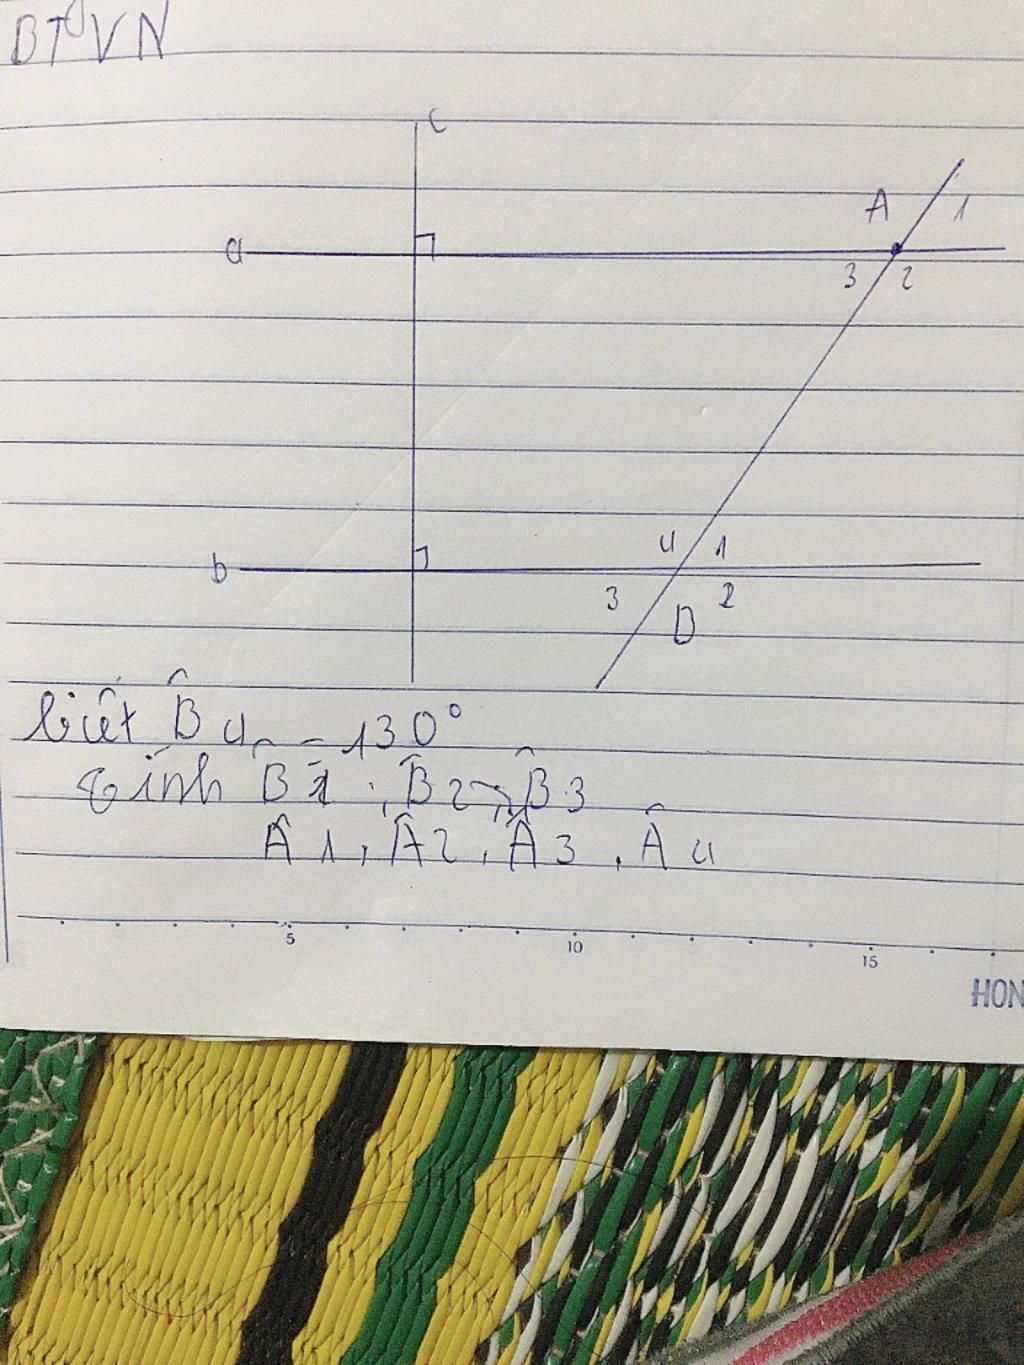 BTVN
c
A 1
a
3 2
4 1
b
3 2
B
biết B̂4 = 130°
Tính B̂1 ; B̂2 ; B̂3
Â1, Â2, Â3, Â4
5 10 15
HON